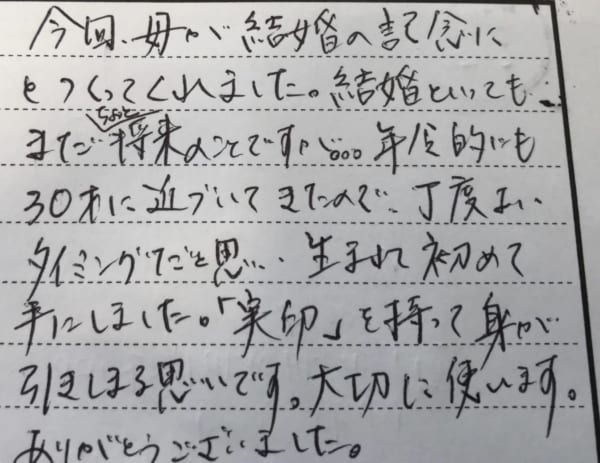 今回、母が結婚の記念に
をつくってくれました。結婚といっても
まだちょっと将来のことですが。。。年令的にも
30才に近づいてきたので、丁度よい
タイミングだと思い、生まれて初めて
手にしました。「実印」を持って身が
引きしまる思いです。大切に使います。
ありがとうございました。